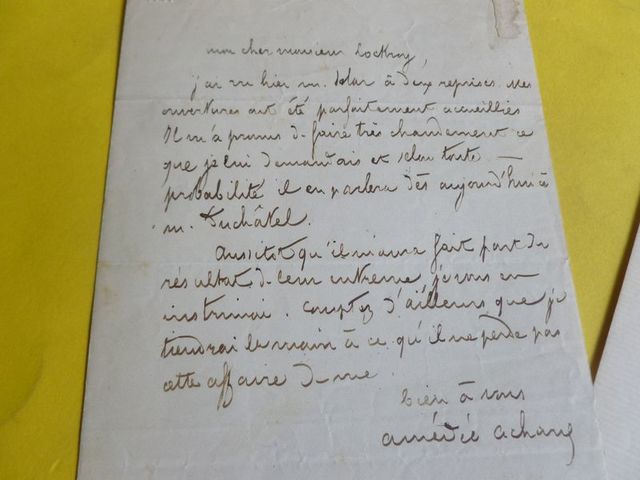 mon cher monsieur Lockroy,
j'ai vu hier m. Blar à deux reprises. Mes
ouvertures ont été parfaitement accueillies
Il m'a promis de faire très chaudement ce
que je lui demandais et selon toute —
probabilité il en parlera dès aujourd'hui à
m. Duchâtel.
Aussitôt qu'il m'aura fait part du
résultat de leur entrevue, je vous en
instruirai. Comptez d'ailleurs que je
tiendrai la main à ce qu'il ne perde pas
cette affaire de vue.
bien à vous
amédée achard